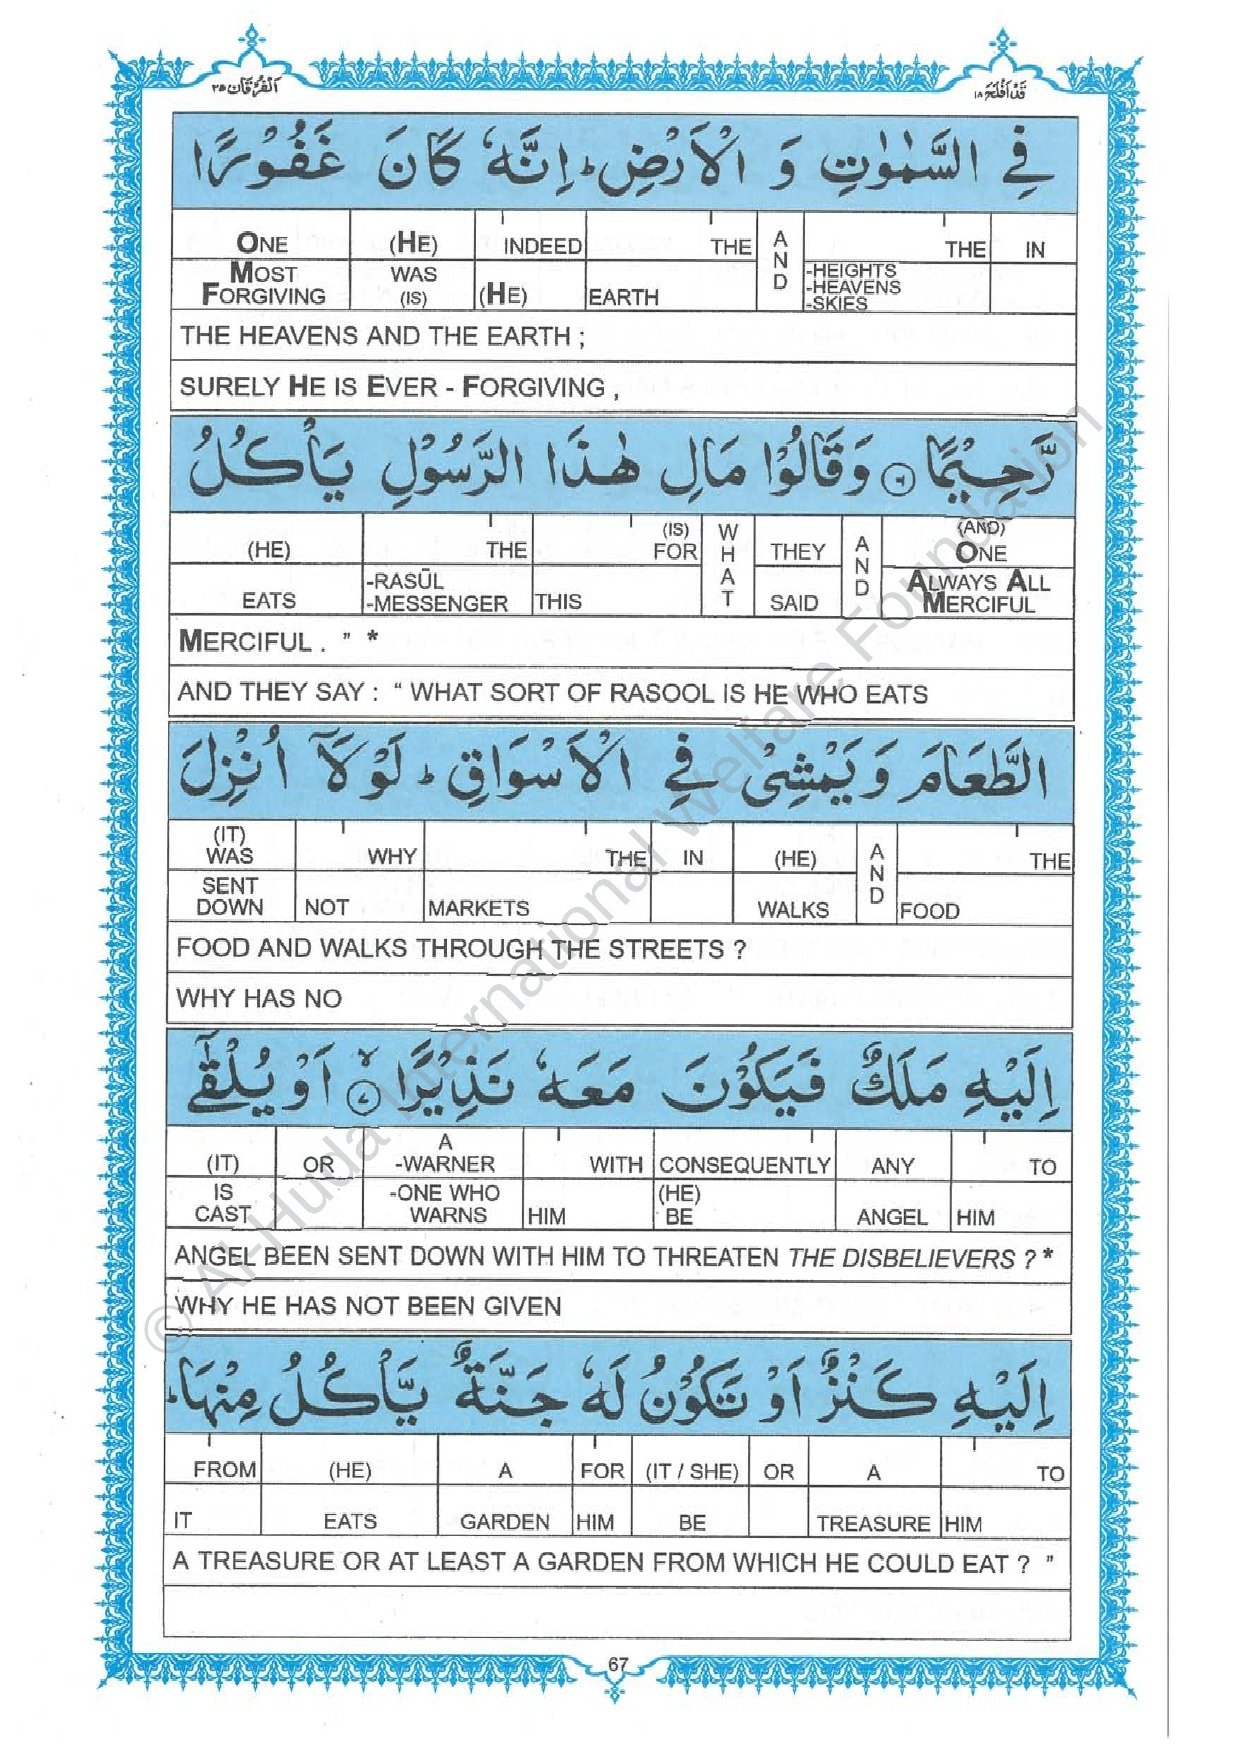 الفرقان ٢٥
قد افلح ١٨
فِي السَّمٰوٰتِ وَ الْاَرْضِ ؕ اِنَّهٗ كَانَ غَفُوْرًا
IN | THE -HEIGHTS -HEAVENS -SKIES | AND | THE EARTH | INDEED (HE) | (HE) WAS (IS) | ONE MOST FORGIVING
THE HEAVENS AND THE EARTH ;
SURELY HE IS EVER - FORGIVING ,
رَّحِيْمًا ۝۶ وَقَالُوْا مَالِ هٰذَا الرَّسُوْلِ يَاْكُلُ
(AND) ONE ALWAYS ALL MERCIFUL | AND | THEY SAID | WHAT | (IS) FOR THIS | THE -RASŪL -MESSENGER | (HE) EATS
MERCIFUL . ” *
AND THEY SAY : “ WHAT SORT OF RASOOL IS HE WHO EATS
الطَّعَامَ وَيَمْشِيْ فِي الْاَسْوَاقِ ؕ لَوْلَاۤ اُنْزِلَ
THE FOOD | AND | (HE) WALKS | IN | THE MARKETS | WHY NOT | (IT) WAS SENT DOWN
FOOD AND WALKS THROUGH THE STREETS ?
WHY HAS NO
اِلَيْهِ مَلَكٌ فَيَكُوْنَ مَعَهٗ نَذِيْرًا ۝۷ۙ اَوْ يُلْقٰۤى
TO HIM | ANY ANGEL | CONSEQUENTLY (HE) BE | WITH HIM | A -WARNER -ONE WHO WARNS | OR | (IT) IS CAST
ANGEL BEEN SENT DOWN WITH HIM TO THREATEN THE DISBELIEVERS ? *
WHY HE HAS NOT BEEN GIVEN
اِلَيْهِ كَنْزٌ اَوْ تَكُوْنُ لَهٗ جَنَّةٌ يَّاْكُلُ مِنْهَا ؕ
TO HIM | A TREASURE | OR | (IT / SHE) BE | FOR HIM | A GARDEN | (HE) EATS | FROM IT
A TREASURE OR AT LEAST A GARDEN FROM WHICH HE COULD EAT ? ”
67
© Al-Huda International Welfare Foundation